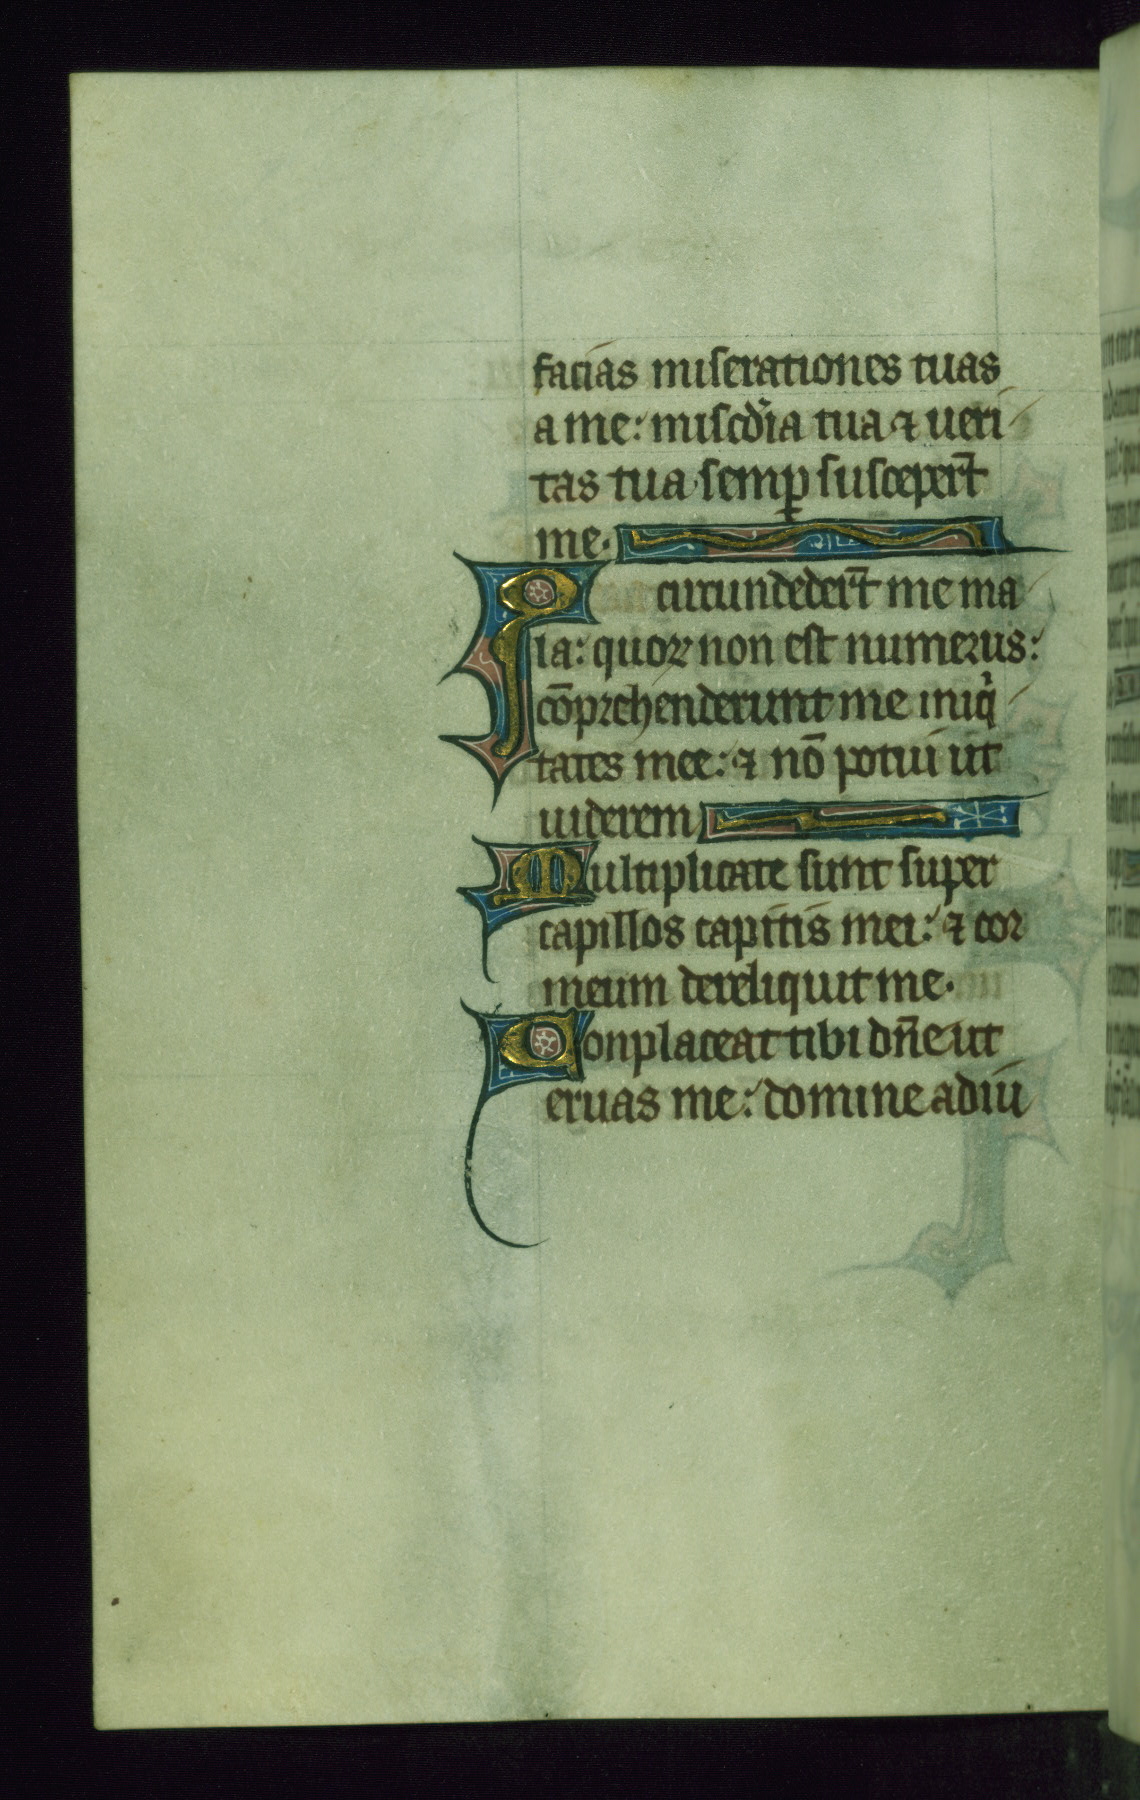 facias miserationes tuas
a me: miscd̾ia tua ⁊ ueri
tas tua semꝑ suscepert̄
me.
I circundedert̄ me ma
la: quoꝝ non est numerus:
co̅prehenderunt me iniqͥ
tates mee: ⁊ no̅ potui ut
uiderem
Multiplicate sunt super
capillos capitis mei: ⁊ cor
meum dereliquit me.
Conplaceat tibi dn̄e ut
eruas me: domine adiu